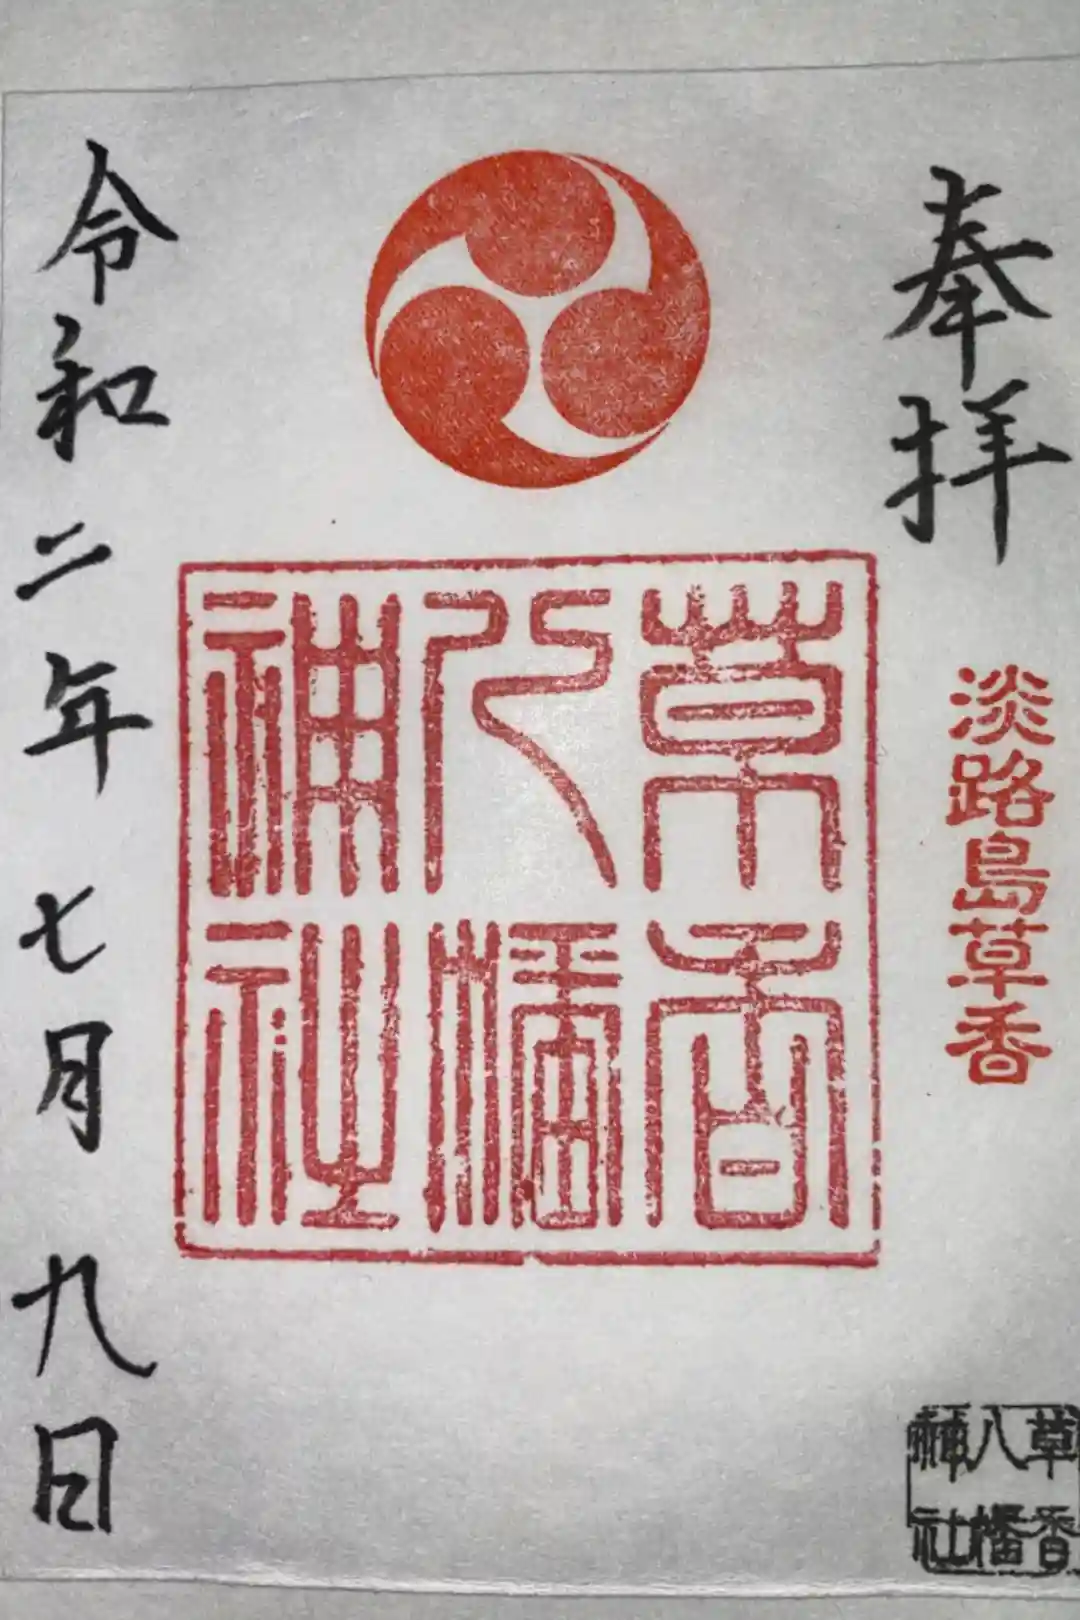 奉拝
淡路島草香
草香
八幡
神社
令和二年七月九日
草香
八幡
神社